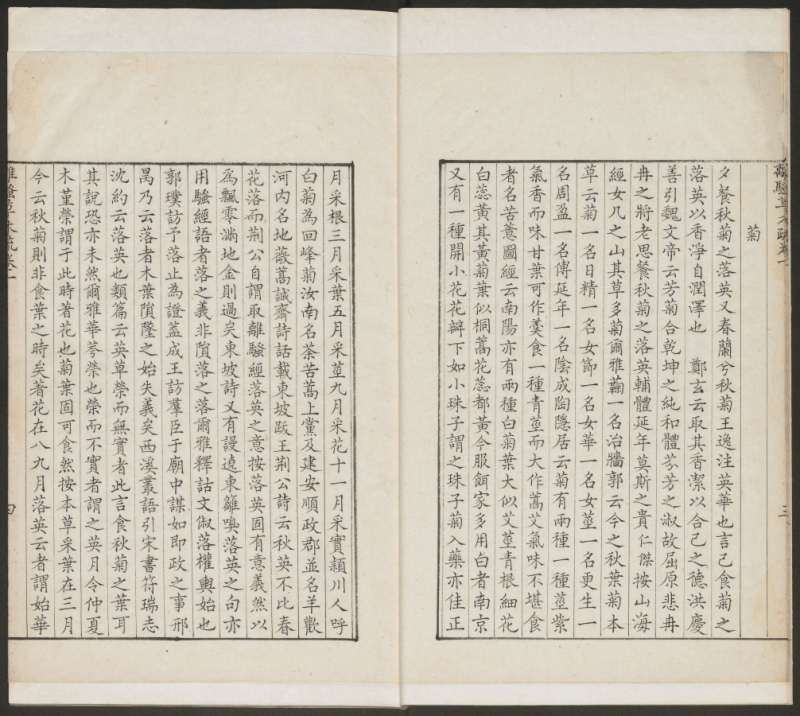 離騷草木疏卷一
三
菊
夕餐秋菊之落英又春蘭兮秋菊王逸注英華也言己食菊之
落英以香淨自潤澤也 鄭玄云取其香潔以合己之德洪慶
善引魏文帝云芳菊含乾坤之純和體芬芳之淑故屈原悲冉
冉之將老思餐秋菊之落英輔體延年莫斯之貴仁傑按山海
經女几之山其草多菊爾雅蘜一名治牆郭云今之秋葉菊本
草云菊一名日精一名女節一名女華一名女莖一名更生一
名周盈一名傅延年一名陰成陶隱居云菊有兩種一種莖紫
氣香而味甘葉可作羹食一種青莖而大作蒿艾氣味不堪食
者名苦薏圖經云南陽亦有兩種白菊葉大似艾莖青根細花
白蕊黃其黃菊葉似桐蒿花蕊都黃今服餌家多用白者南京
又有一種開小花花瓣下如小珠子謂之珠子菊入藥亦佳正
月采根三月采葉五月采莖九月采花十一月采實潁川人呼
白菊為回峰菊汝南名荼苦蒿上黨及建安順政郡並名羊歡
河內名地薇蒿誠齋詩話載東坡跋王荊公詩云秋英不比春
花落而荊公自謂取離騷經落英之意按落英固有意義然以
為飄零滿地金則過矣東坡詩又有謾遶東籬嗅落英之句亦
用騷經語者落之義非隕落之落爾雅釋詁文俶落權輿始也
郭璞訪予落止為證蓋成王訪羣臣于廟中謀如即政之事邢
昺乃云落者木葉隕墜之始失義矣西溪叢語引宋書符瑞志
沈約云落英也類篇云英草榮而無實者此言食秋菊之葉耳
其說恐亦未然爾雅華荂榮也榮而不實者謂之英月令仲夏
木堇榮謂于此時著花也菊葉固可食然按本草采葉在三月
今云秋菊則非食葉之時矣著花在八九月落英云者謂始華
離騷草木疏卷一
四